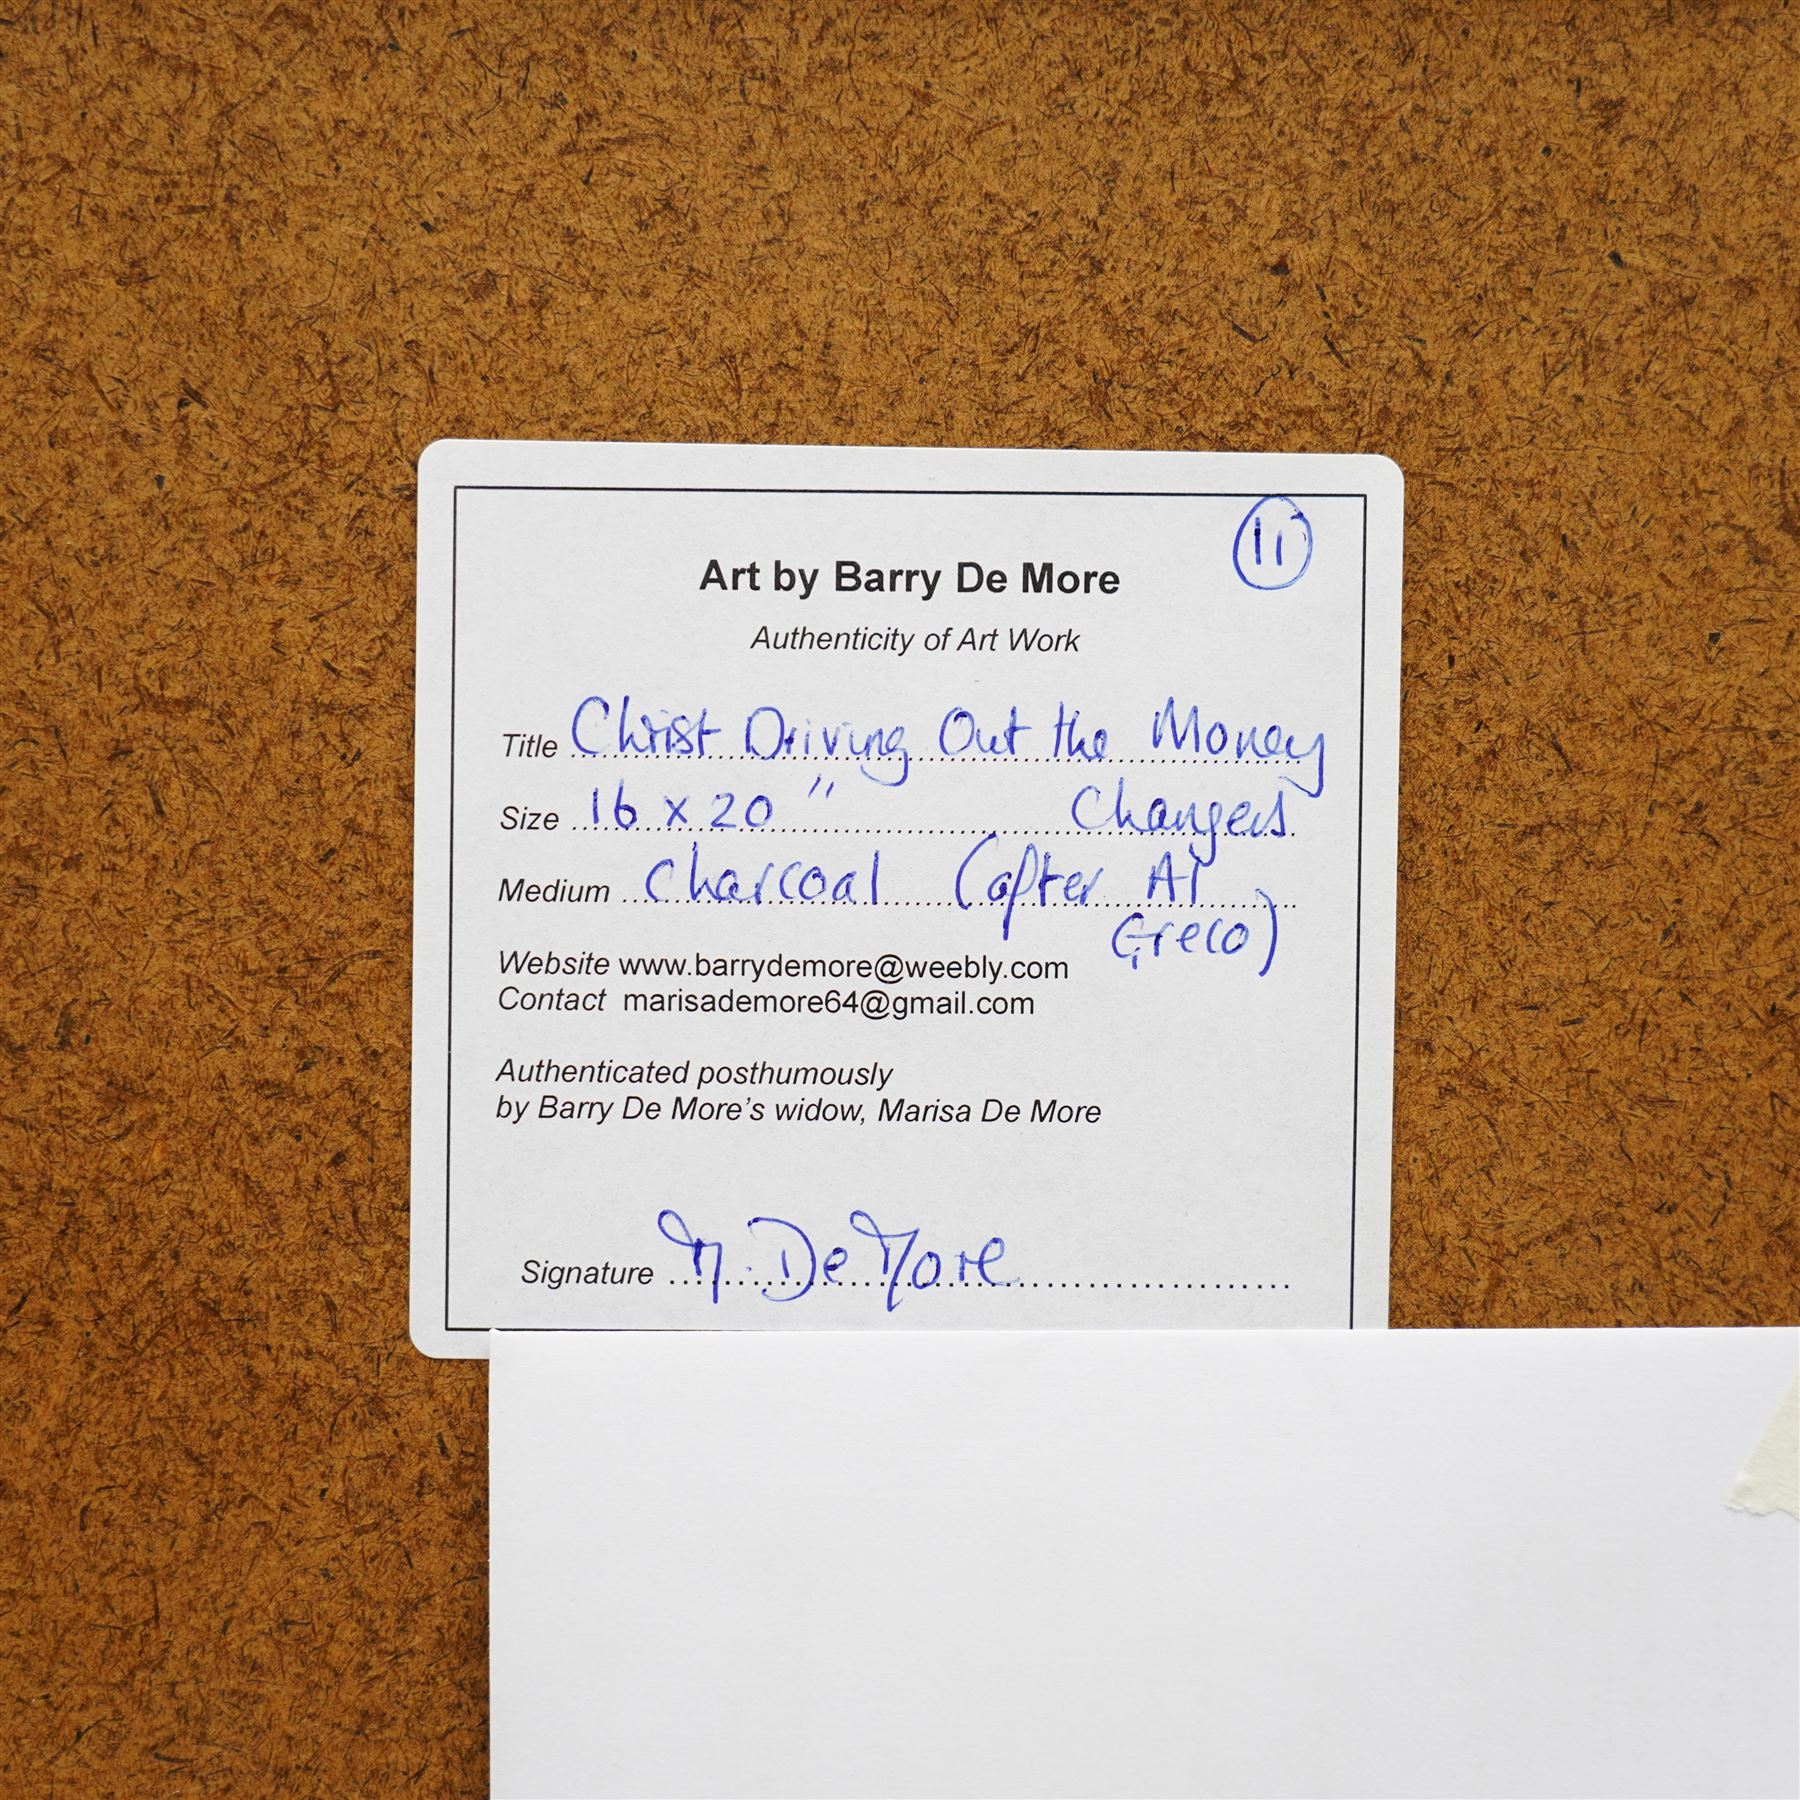 11
Art by Barry De More
Authenticity of Art Work
Title Christ Driving Out the Money
Size 16 x 20" Changers
Medium Charcoal (after Al
Greco)
Website www.barrydemore@weebly.com
Contact marisademore64@gmail.com
Authenticated posthumously
by Barry De More's widow, Marisa De More
Signature M. De More